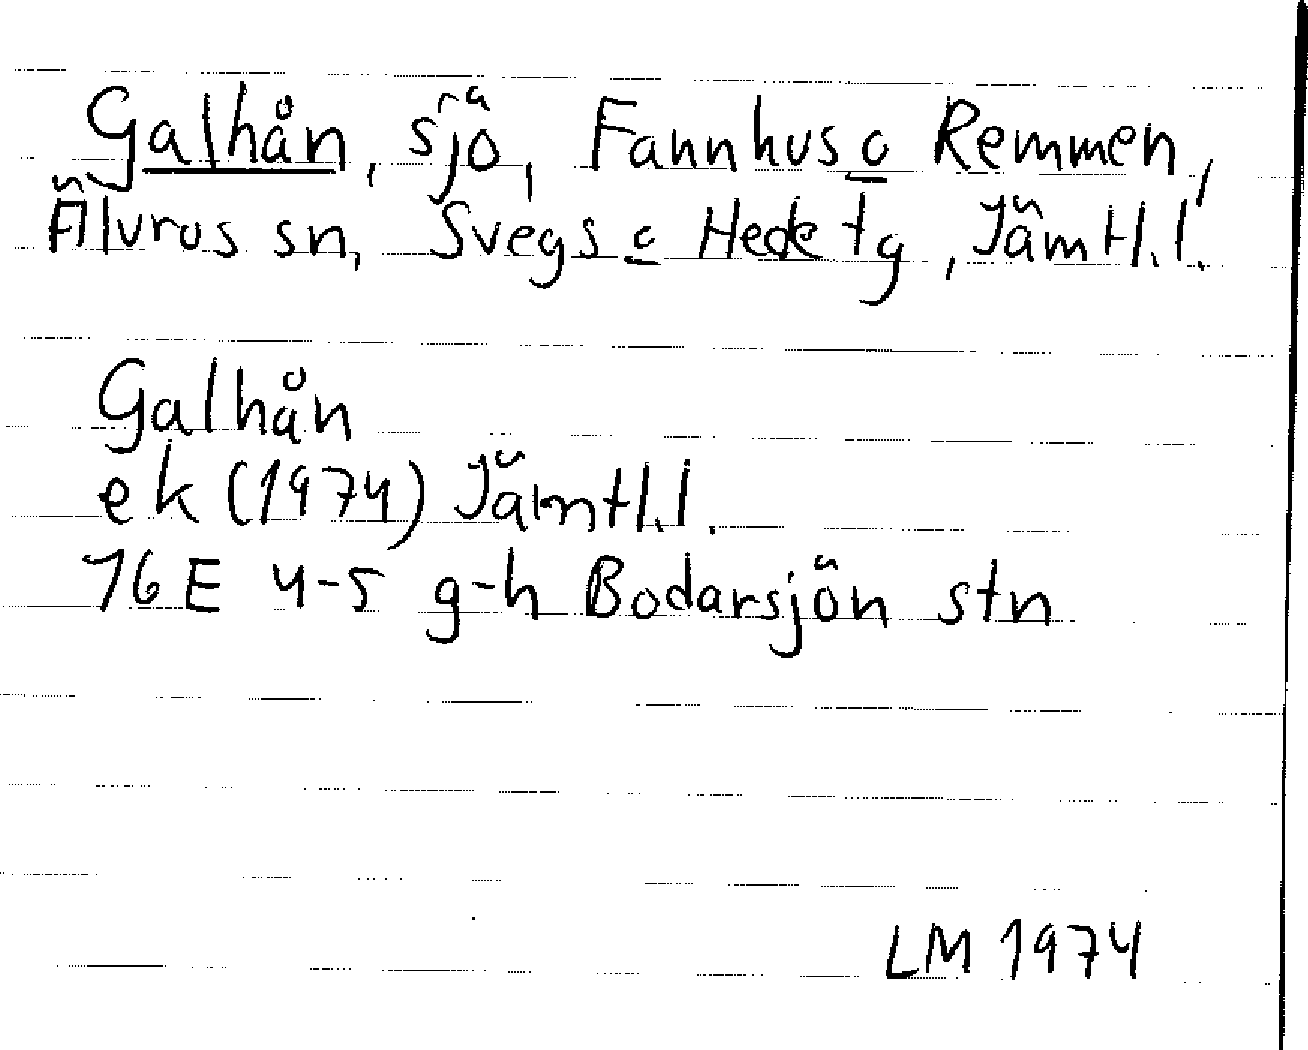 Galhån, sjö, Fannhus o Remmen,
Älvros sn, Svegs o Hede tg, Jämtl.l.
Galhån
ek (1974) Jämtl.l.
16E 4-5 g-h Bodarsjön stn
LM 1974